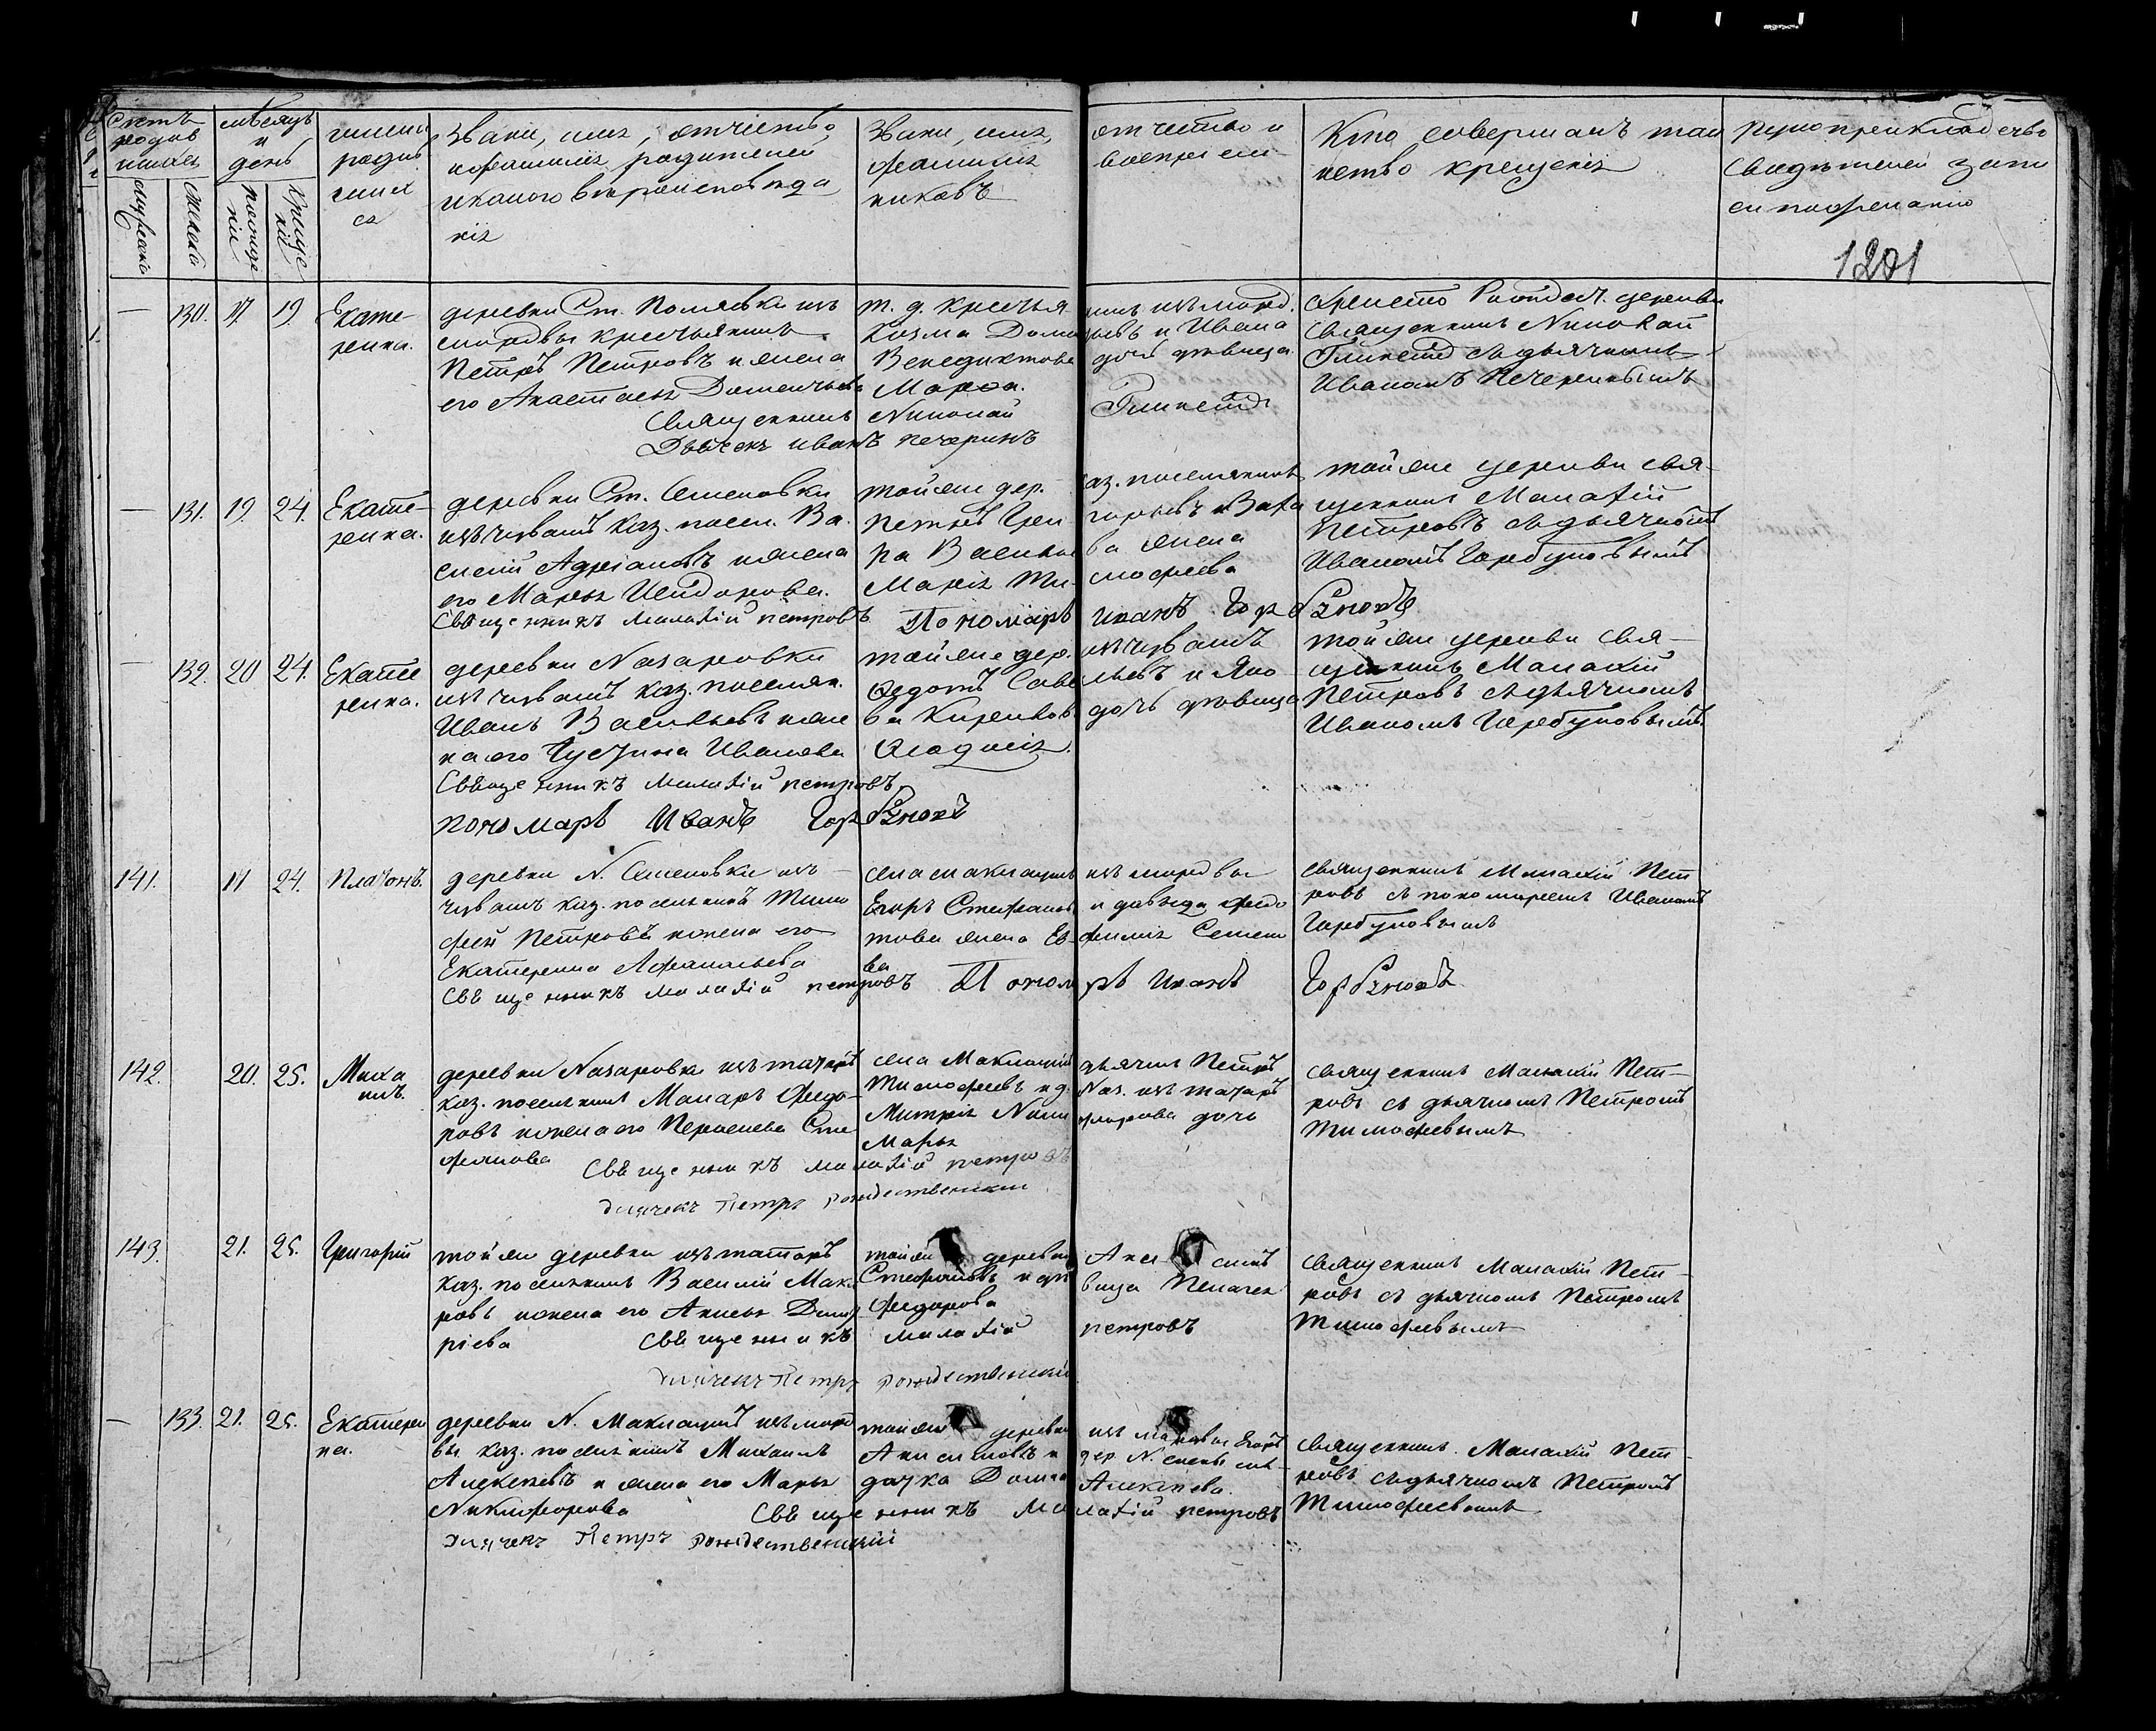 Счетъ родив шихся
мужеска
женска
месяцъ и день
рожде нія
Креще нія
имена родив шихся
Звание, имя, отчество,
и фамилия родителей
и какого вероисповеда
нія
Звание, имя,
фамилия
никовъ
отчество и
воспріем
Кто совершалъ таи
нство крещенія
рукоприкладство
свидетелей запи
си по желанію
1201
— 130. 17. 19. Екате
рина.
деревни Ст. изъ
мордвы крестьянинъ
Петръ Петровъ и жена
его Анастасья Дементьева
Священникъ Николай
Дьячекъ иванъ печеринъ
т. д. крестья
Козма Доми
Венедиктова
Марѳа.
нинъ изъ морд.
и Ивана
дочь девица.
церкви
Священникъ Николай
съ дьячкомъ
Иваномъ Печеринымъ
— 131. 19. 24. Екате
рина.
деревни Ст. Семеновки
изъ чувашъ каз. посел. Ва
силій Адріановъ и жена
его Марья Исидорова.
Священникъ Малаѳій петровъ Пономарь иванъ Горбуновъ
тойже дер.
Петръ Гри
ра Василье
Марія Ти
каз. поселянинъ
горьевъ и Заха
ва жена
мофеева
тойже церкви свя
щенникъ Малаѳій
Петровъ съ дьячкомъ
Иваномъ Горбуновымъ
— 132. 20. 24. Екате
рина.
деревни Назаровки
изъ чувашъ каз. поселян.
Иванъ Васильевъ и же
на его Устина Иванова
Священникъ Малаѳій петровъ
пономарь Иванъ Горбуновъ
тойже дер.
Ѳедотъ Саве
ва
изъ чувашъ
льевъ и Яко
дочь девица
тойже церкви свя
щенникъ Малаѳій
Петровъ съ дьячкомъ
Иваномъ Горбуновымъ
141. 17 24. Платонъ.
деревни Н. Семеновки изъ
чувашъ каз. поселянинъ Тимо
фей Петровъ и жена его
Екатерина Афанасьева
Священникъ Малаѳій петровъ Пономарь Иванъ Горбуновъ
села Маклаушъ
Егоръ Стефановъ
това жена Ев
ва
изъ мордвы
и давыда федо
фимія Семено
священникъ Малаѳій Пет
ровъ съ пономаремъ Иваномъ
Горбуновымъ
142. 20. 25. Миха
илъ.
деревни Назаровки изъ татаръ
каз. поселянинъ Макаръ Федо
ровъ и жена его Сте
фанова
Священникъ Малаѳій петровъ
дьячекъ Петръ рождественский
села Маклаушъ
Тимофеевъ и д.
Митрія Ники
Марья
дьячекъ Петръ
Наз. изъ татаръ
форова дочь
священникъ Малаѳій Пет
ровъ съ дьячкомъ Петромъ
Тимофевымъ
143. 21. 25. Григорій
тойже деревни изъ татаръ
каз. поселянинъ Василій Мака
ровъ и жена его Анисья Дмит
ріева
Священникъ Малаѳій петровъ
дьячекъ Петръ рождественскій
тойже деревни
Стефановъ и де
Федорова
вица Пелагея
священникъ Малаѳій Пет
ровъ съ дьячкомъ Петромъ
Тимофевымъ
— 133. 21. 25. Екатери
на.
деревни Н. Маклаушъ изъ морд
вы каз. поселянинъ Михаилъ
Алексеевъ и жена его Марья
Никифорова
Священникъ Малаѳій петровъ
дьячекъ Петръ рождественскій
тойже деревни
Анисимовъ и
дочка Домна
изъ мордвы Егоръ
дер. Н.
Алексеева.
священникъ Малаѳій Пет
ровъ съ дьячкомъ Петромъ
Тимофеевымъ